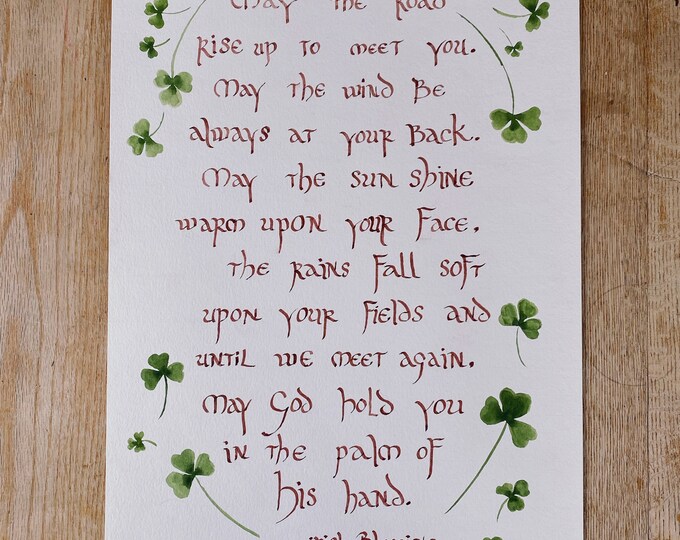 May the Road
Rise up to meet you.
May the wind Be
always at your Back.
May the sun shine
warm upon your Face,
the Rains Fall soft
upon your Fields and
until we meet again,
may God hold you
in the palm of
his hand.
Irish Blessing